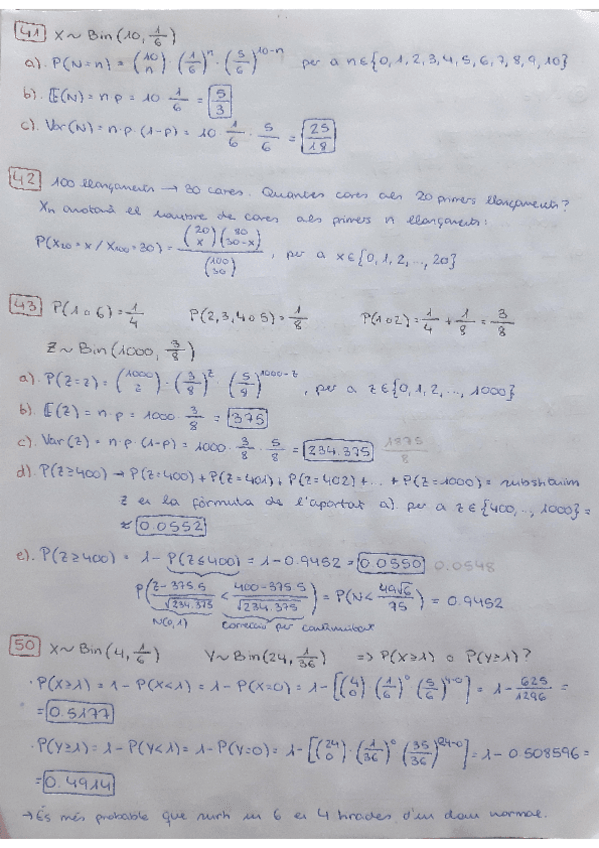 41 X ~ Bin(10, 1/6)
a). P(N=n) = (10 n) · (1/6)^n · (5/6)^10-n per a n∈{0, 1, 2, 3, 4, 5, 6, 7, 8, 9, 10}
b). E(N) = n·p = 10 · 1/6 = 5/3
c). Var(N) = n·p·(1-p) = 10 · 1/6 · 5/6 = 25/18
42 100 llançaments → 30 cares. Quantes cares als 20 primers llançaments?
Xn anotarà el nombre de cares als primers n llançaments:
P(X20 = x / X100 = 30) = (20 x)(80 30-x) / (100 30), per a x∈{0, 1, 2, ..., 20}
43 P(1 o 6) = 1/4 P(2, 3, 4 o 5) = 1/8 P(1 o 2) = 1/4 + 1/8 = 3/8
Z ~ Bin(1000, 3/8)
a). P(Z=z) = (1000 z) · (3/8)^z · (5/8)^1000-z, per a z∈{0, 1, 2, ..., 1000}
b). E(Z) = n·p = 1000 · 3/8 = 375
c). Var(Z) = n·p·(1-p) = 1000 · 3/8 · 5/8 = 234.375 1875/8
d). P(Z≥400) → P(Z=400) + P(Z=401) + P(Z=402) + ... + P(Z=1000) = substituim
z en la fórmula de l'apartat a). per a z∈{400, .., 1000} =
≈ 0.0552
e). P(Z≥400) = 1 - P(Z≤400) = 1 - 0.9452 = 0.0550 0.0548
P(Z-375.5/√234.375 < 400-375.5/√234.375) = P(N < 49√6/75) = 0.9452
N(0,1) correcció per continuïtat
50 X ~ Bin(4, 1/6) Y ~ Bin(24, 1/36) => P(X≥1) o P(Y≥1)?
· P(X≥1) = 1 - P(X<1) = 1 - P(X=0) = 1 - [(4 0) · (1/6)^0 (5/6)^4-0] = 1 - 625/1296 =
= 0.5177
· P(Y≥1) = 1 - P(Y<1) = 1 - P(Y=0) = 1 - [(24 0) · (1/36)^0 (35/36)^24-0] = 1 - 0.508596 =
= 0.4914
→ És més probable que surti un 6 en 4 tirades d'un dau normal.